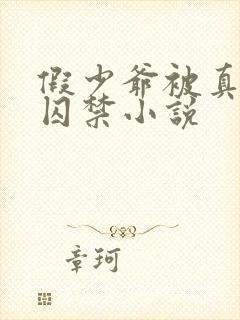 假少爷被真
囚禁小说
章珂